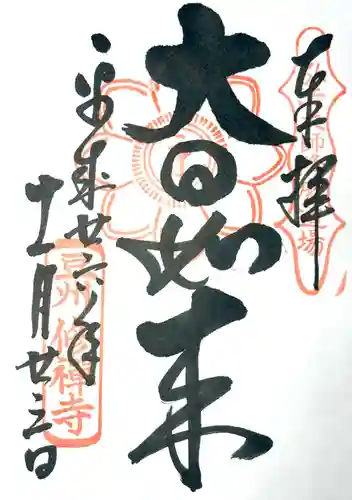 奉拝
大日如来
平成廿六年
十一月廿三日
豆州修禅寺